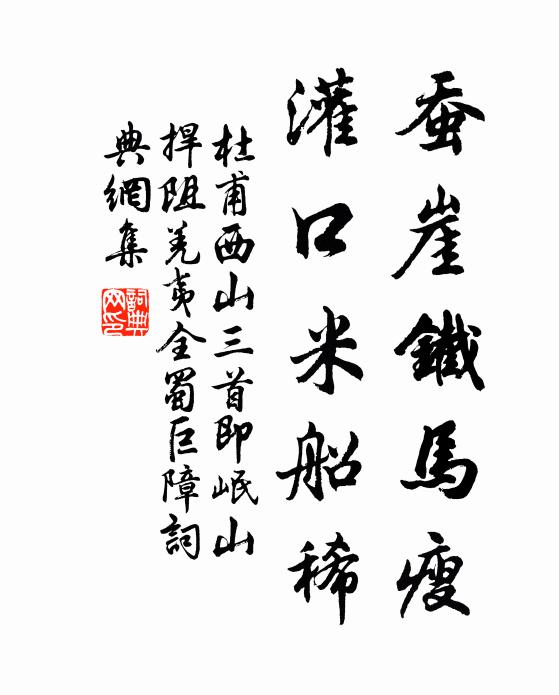 蚕崖鐵馬瘦
灌口米船稀
杜甫西山三首即岷山
捍阻羌夷全蜀巨障詞
典網集
詞典
网印